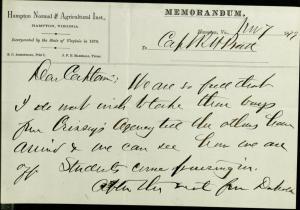 Hampton Normal and Agricultural Inst.,
HAMPTON, VIRGINIA.
Incorporated by the State of Virginia in 1870.
S. C. ARMSTRONG, Prin'l. J. F. B. MARSHALL, Treas.
MEMORANDUM.
Hampton, Va., Nov 7
To Capt R H Pratt
Dear Captain: We are so full that
I do not wish to take those boys
from Agency till the others have
arrived & we can see how we are
off. Students come pouring in.
after this not from Dakota